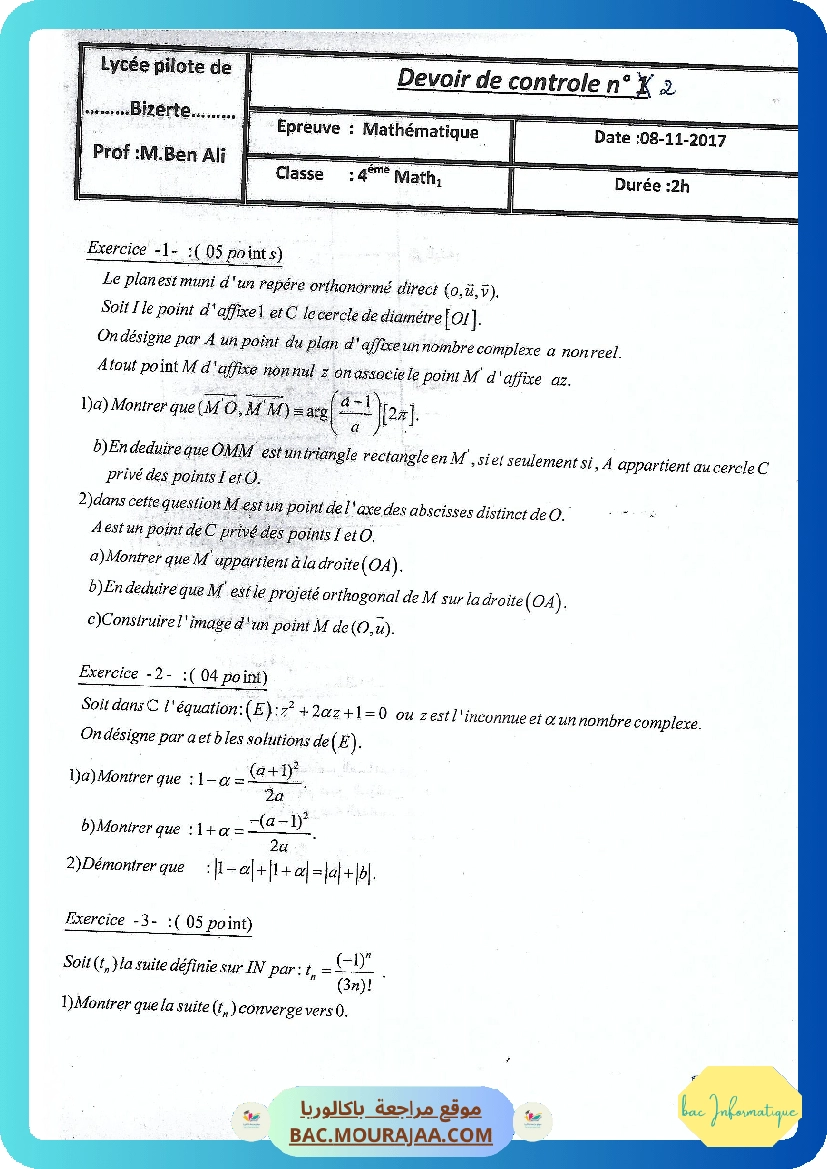 Lycée pilote de
.........Bizerte.........
Prof :M.Ben Ali
Devoir de controle n° 1 2
Epreuve : Mathématique
Date :08-11-2017
Classe : 4éme Math1
Durée :2h
Exercice -1- :( 05 points)
Le plan est muni d'un repére orthonormé direct (o,u⃗,v⃗).
Soit I le point d'affixe1 et C le cercle de diamétre [OI].
On désigne par A un point du plan d'affixe un nombre complexe a non reel.
A tout point M d'affixe non nul z on associe le point M' d'affixe az.
1)a) Montrer que (M'O, M'M) ≡ arg((a-1)/a)[2π].
b)En deduire que OMM' est un triangle rectangle en M', si et seulement si, A appartient au cercle C
privé des points I et O.
2)dans cette question M est un point de l'axe des abscisses distinct de O.
A est un point de C privé des points I et O.
a)Montrer que M' appartient à la droite (OA).
b)En deduire que M' est le projeté orthogonal de M sur la droite (OA).
c)Construire l'image d'un point M de (O,u⃗).
Exercice -2- :( 04 point)
Soit dans ℂ l'équation: (E): z² + 2αz + 1 = 0 ou z est l'inconnue et α un nombre complexe.
On désigne par a et b les solutions de (E).
1)a)Montrer que : 1-α = (a+1)²/2a.
b)Montrer que : 1+α = -(a-1)²/2a.
2)Démontrer que : |1-α|+|1+α|=|a|+|b|.
Exercice -3- :( 05 point)
Soit (tn) la suite définie sur IN par : tn = (-1)ⁿ/(3n)! .
1)Montrer que la suite (tn) converge vers 0.
موقع مراجعة باكالوريا
BAC.MOURAJAA.COM
bac Informatique